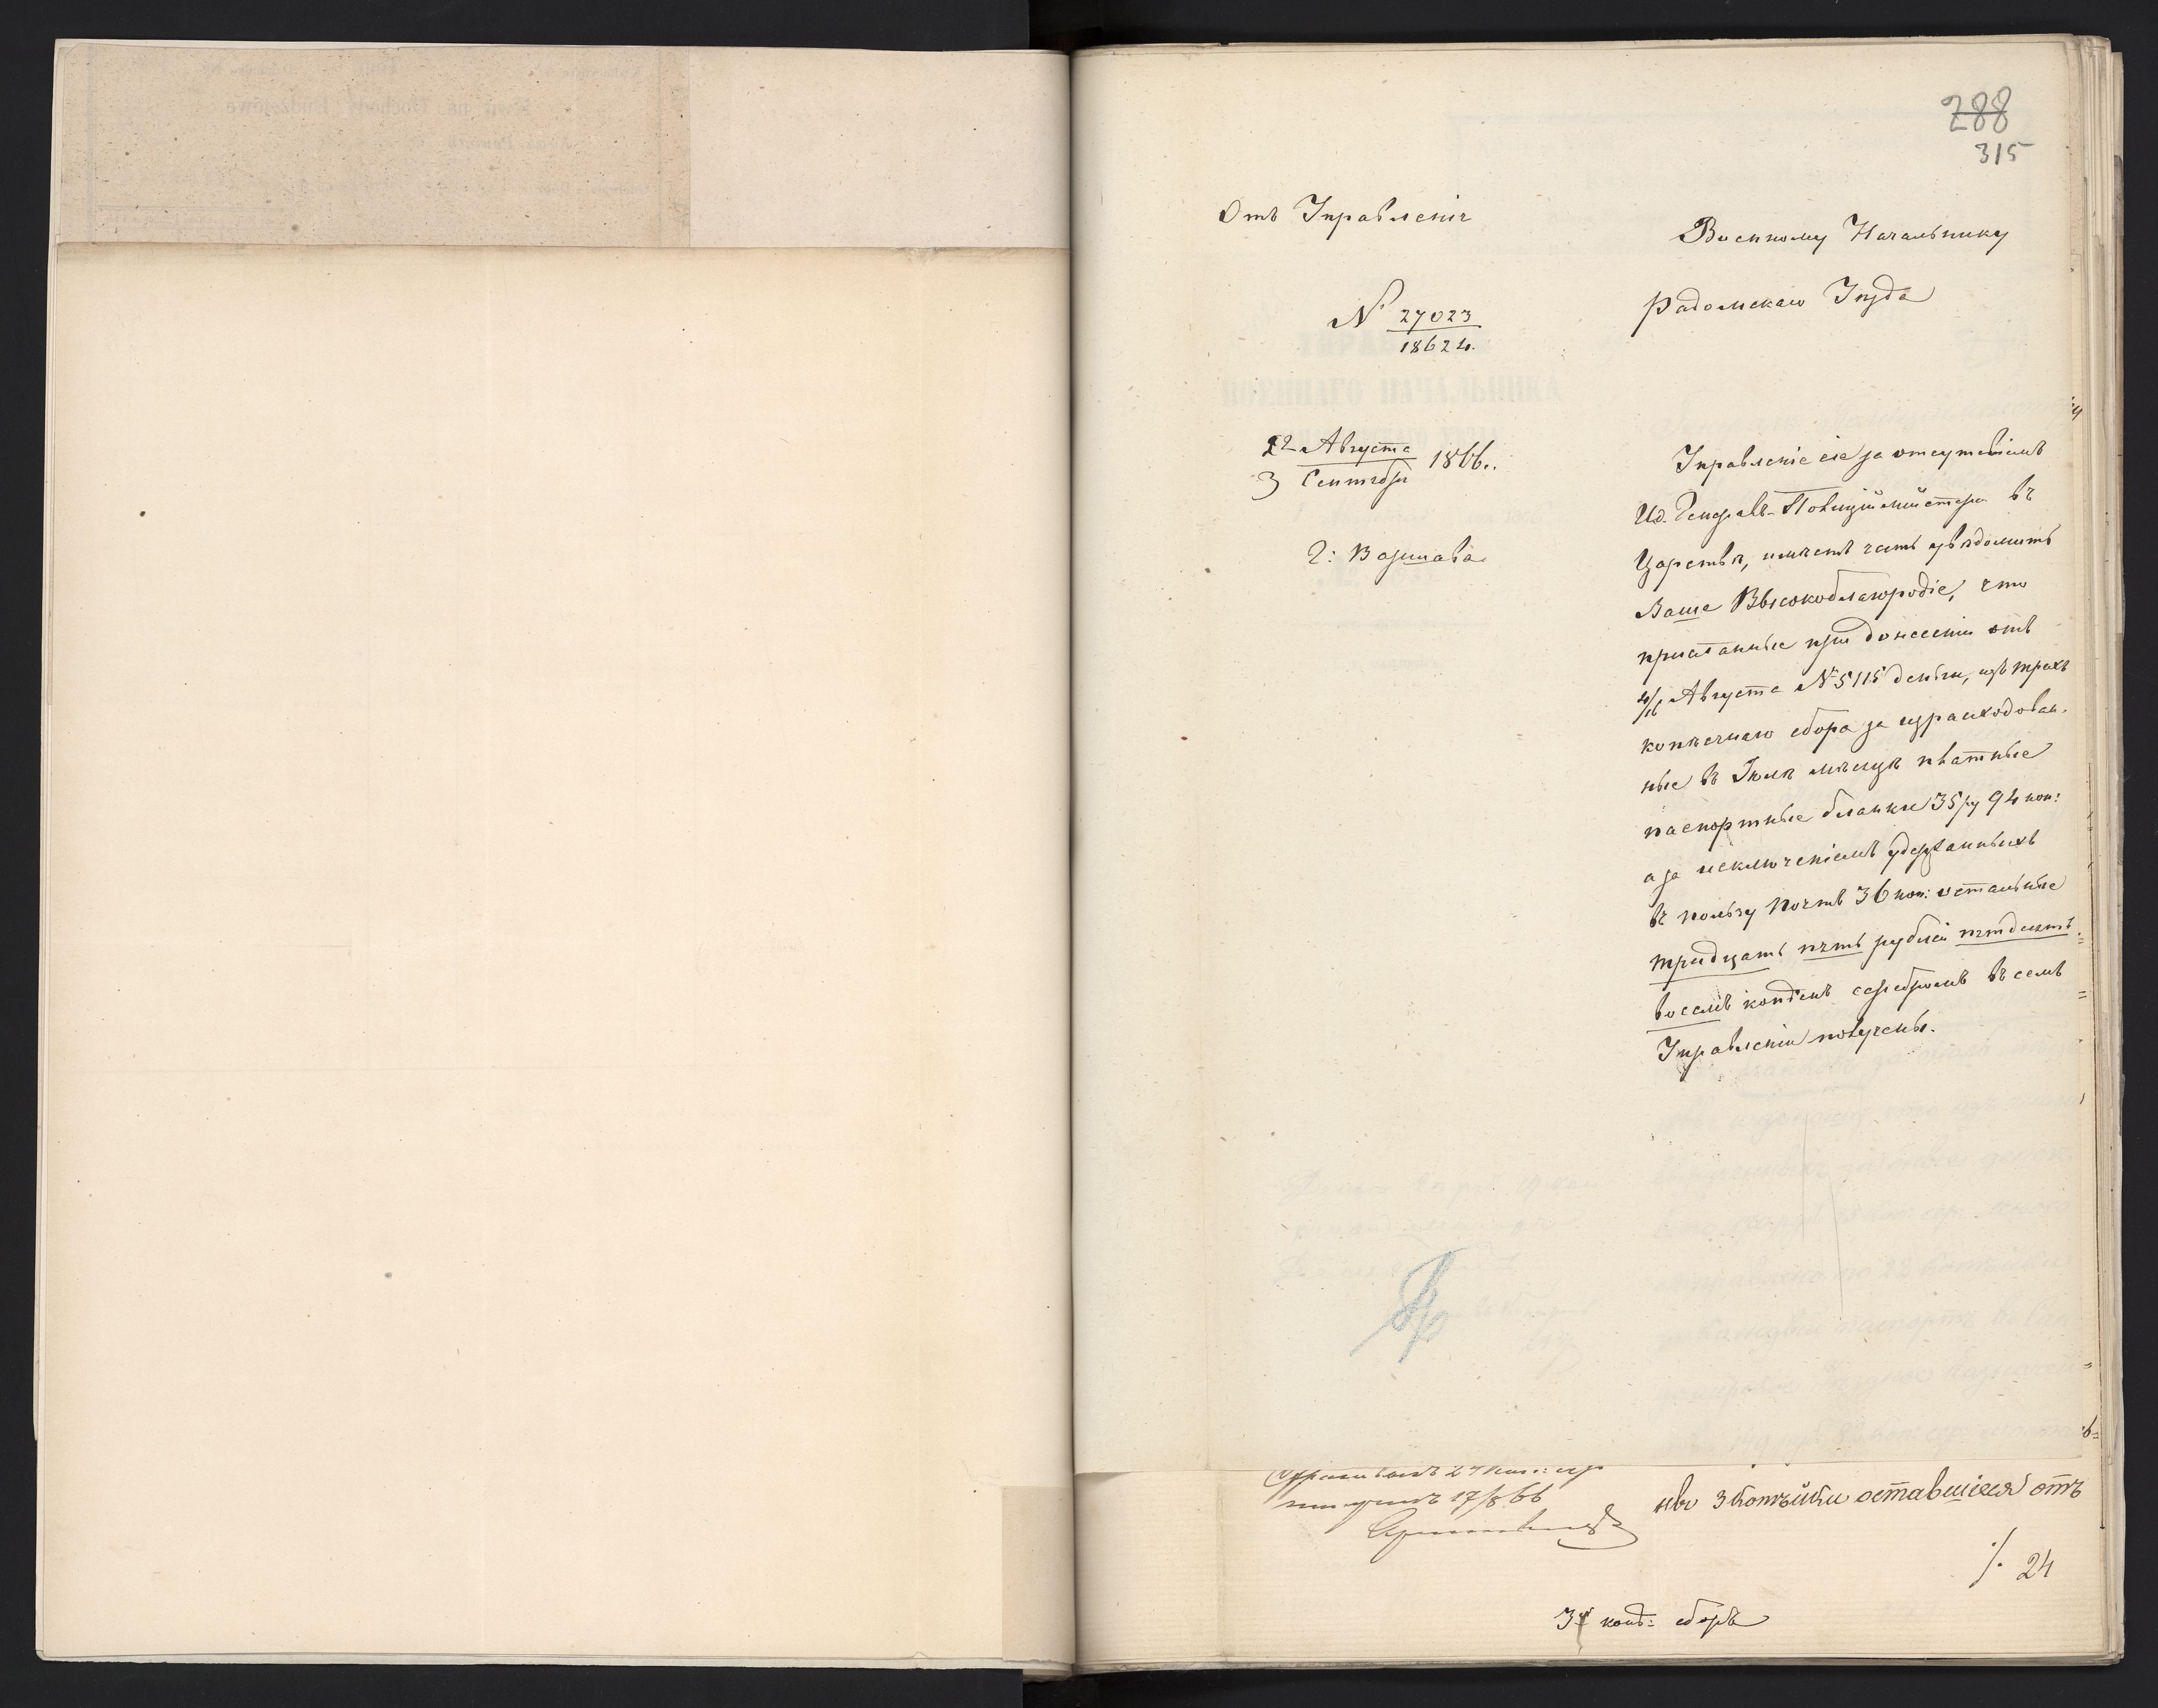 288
315
Отъ Управленія
Военному Начальнику
Радомскаго Уѣзда
N 27023
18624.
22 Августа
3 Сентября 1866.
Г: Варшава.
Управленіе сіе за отсутствіемъ
Ид. Генералъ-Полиціймейстера въ
Царствѣ, имѣетъ честь увѣдомить
Ваше Высокоблагородіе, что
присланные при донесеніи отъ
4/16 Августа № 5115 деньги, изъ трехъ
копѣечнаго сбора за израсходован-
ные въ Іюлѣ мѣсяцѣ платные
паспортные бланки 35 ру 94 коп:
а за исключеніемъ удержанныхъ
въ пользу почтъ 36 коп: остальные
тридцать пять рублей пятдесятъ
восемь копѣекъ серебромъ въ семъ
Управленіи получены.
24 коп: сер
17/8 66
3 копѣйки оставшіеся отъ
./. 24
3х коп: сборъ